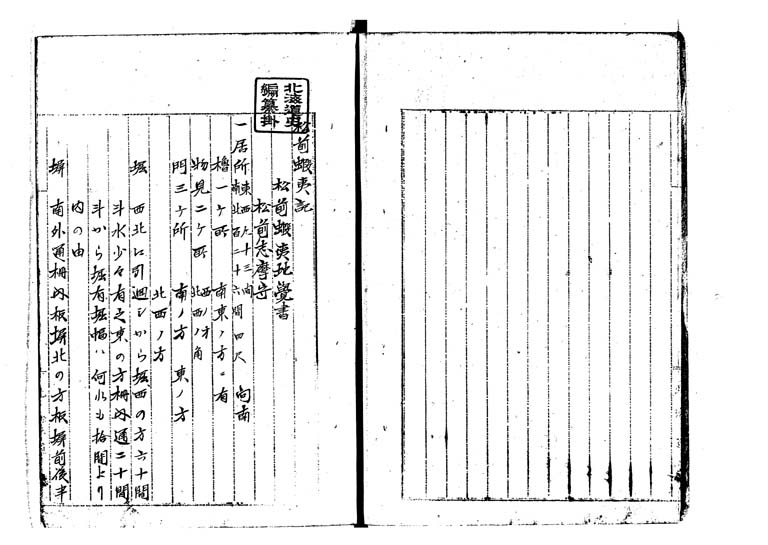 北海道史
編纂掛
松前蝦夷記
松前蝦夷地覺書
松前志摩守
一居所 東西九十三間 南北百二十六間四尺 向南
櫓一ケ所 南東ノ方ニ有
物見二ケ所 西ノ方 北西ノ角
門三ケ所 南ノ方 東ノ方
北西ノ方
堀 西北に引廻しから堀西の方六十間
斗水少々有之東の方柵内通二十間
斗から堀有堀幅ハ何れも拾間より
内の由
塀 南外通柵内板塀北の方板塀前後半